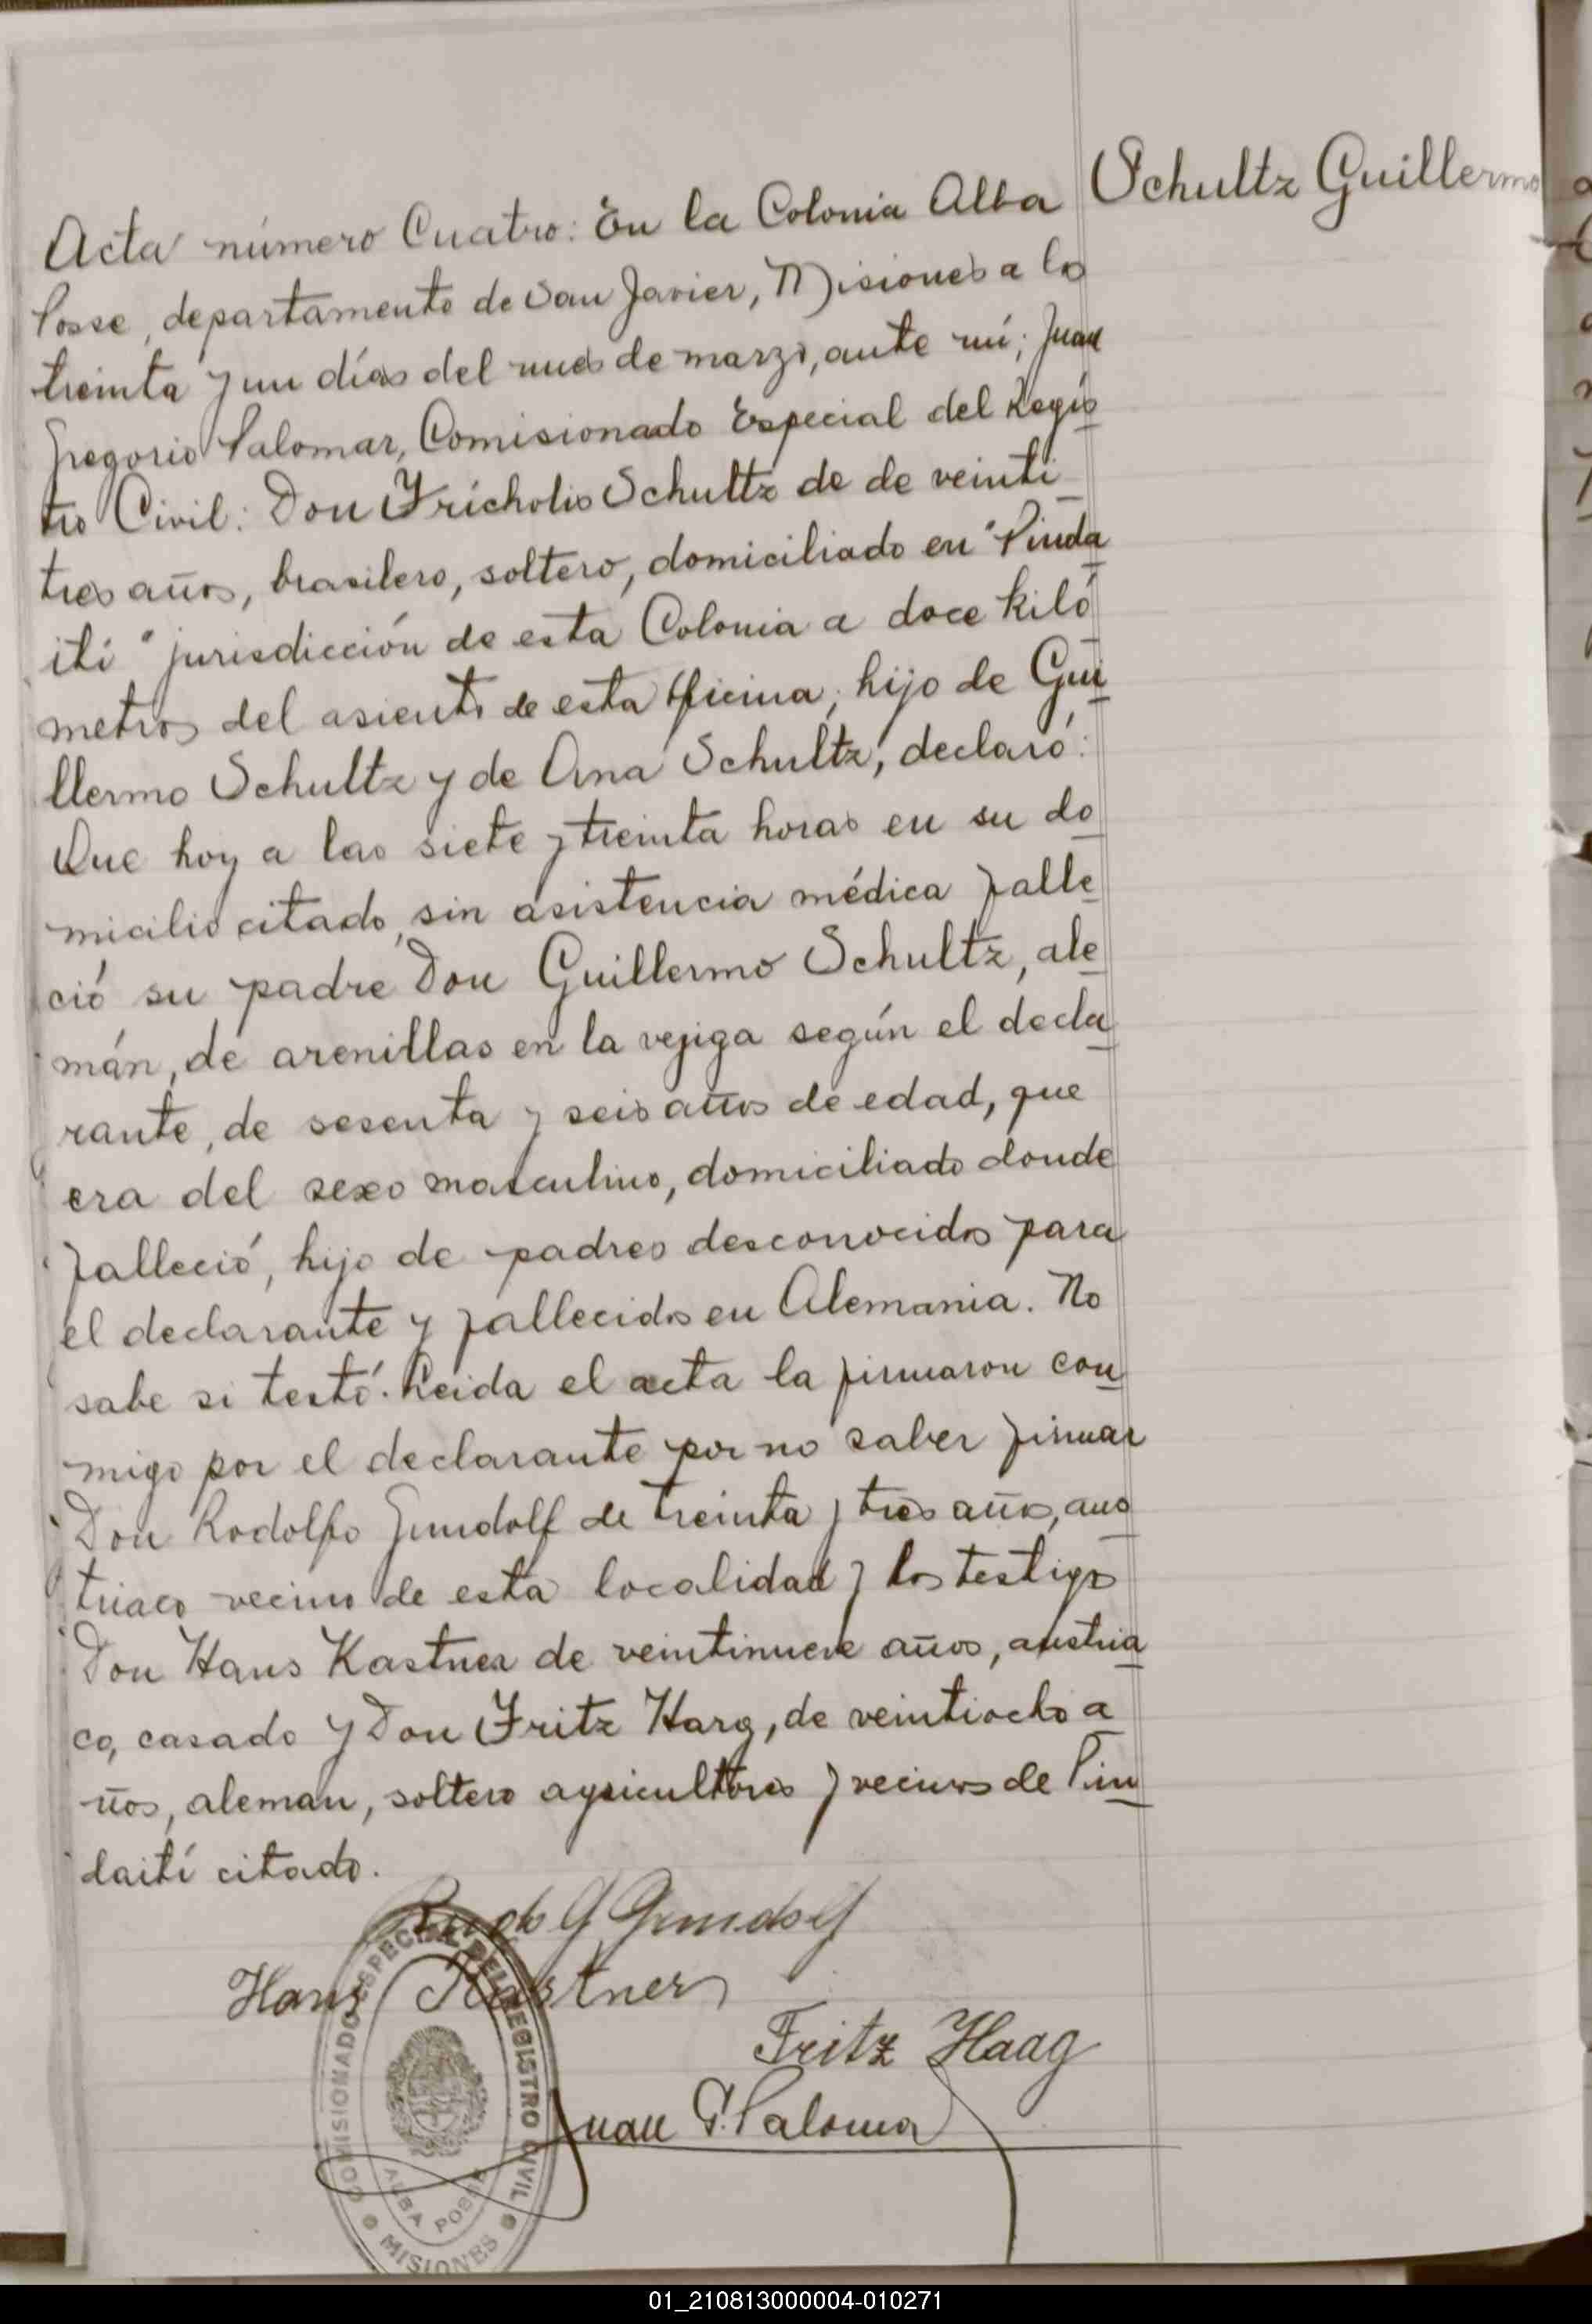 Schultz Guillermo
Acta número Cuatro: En la Colonia Alba
Posse, departamento de San Javier, Misiones a los
treinta y un días del mes de marzo, ante mí; Juan
Gregorio Palomar, Comisionado Especial del Regis
tro Civil: Don Fricholis Schultz de de veinti
tres años, brasilero, soltero, domiciliado en "Pinda
ití" jurisdicción de esta Colonia a doce kiló
metros del asiento de esta Oficina, hijo de Gui
llermo Schultz y de Ana Schultz, declaró:
Que hoy a las siete y treinta horas en su do
micilio citado, sin asistencia médica falle
ció su padre Don Guillermo Schultz, ale
mán, de arenillas en la vejiga según el decla
rante, de sesenta y seis años de edad, que
era del sexo masculino, domiciliado donde
falleció, hijo de padres desconocidos para
el declarante y fallecidos en Alemania. No
sabe si testó. Leida el acta la firmaron con
migo por el declarante por no saber firmar
Don Rodolfo Gundolf de treinta y tres años, aus
triaco vecino de esta localidad y los testigos
Don Hans Kastner de veintinueve años, austria
co, casado y Don Fritz Harg, de veintiocho a
ños, aleman, soltero agricultores y vecinos de Pin
daití citado.
G Gundolf
Hans Kastner
Fritz Haag
Juan G. Palomar
COMISIONADO ESPECIAL DEL REGISTRO CIVIL
ALBA POSSE
MISIONES
01_210813000004-010271